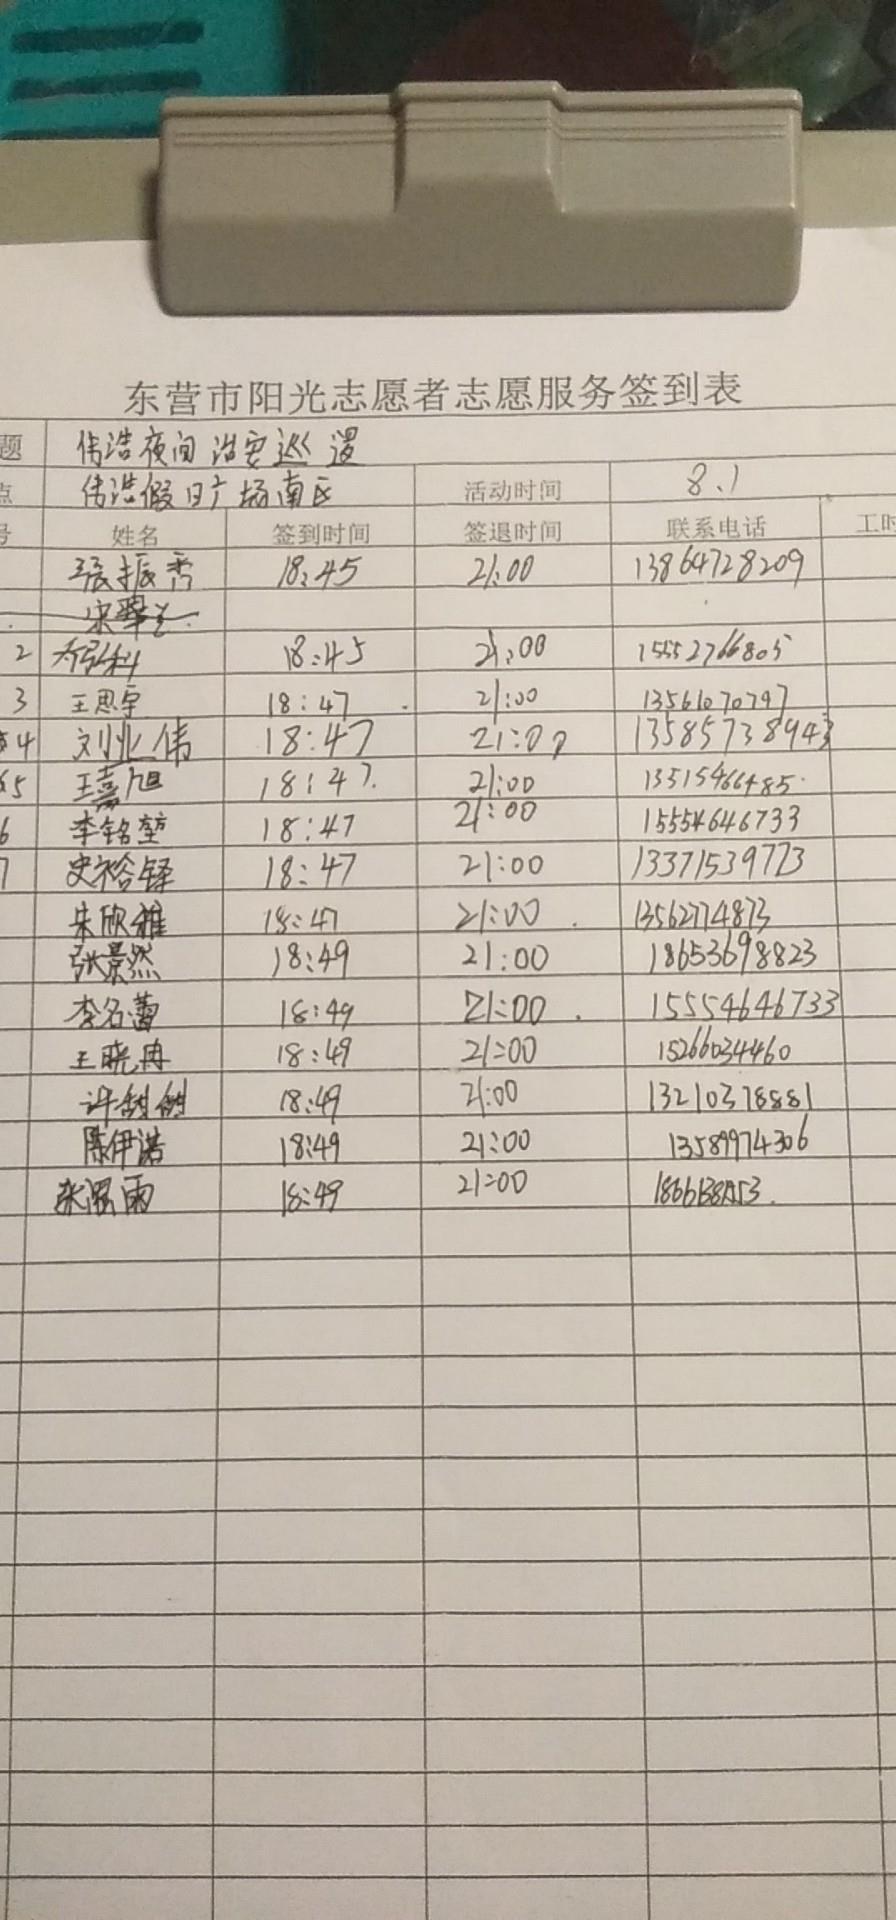 东营市阳光志愿者志愿服务签到表
题 伟浩夜间治安巡逻
点 伟浩假日广场南区 活动时间 8.1
号 姓名 签到时间 签退时间 联系电话 工时
张振秀 18:45 21:00 13864728209
2 18:45 21:00 15552766805
3 王思宇 18:47 21:00 13561070797
4 刘业伟 18:47 21:00 13585738943
5 王嘉旭 18:47 21:00 13515466485
6 李铭堃 18:47 21:00 15554646733
7 史裕铎 18:47 21:00 13371539773
朱欣雅 18:47 21:00 13562774873
张景然 18:49 21:00 18653698823
李名蕾 18:49 21:00 15554646733
王晓冉 18:49 21:00 15266034460
许 18:49 21:00 13210378881
陈伊诺 18:49 21:00 13589974306
雨 18:49 21:00